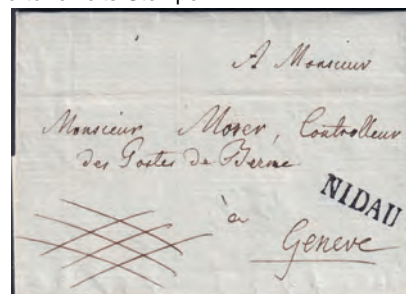 A Monsieur
Monsieur Moser, Controlleur
des Postes de Berne
NIDAU
à
Geneve